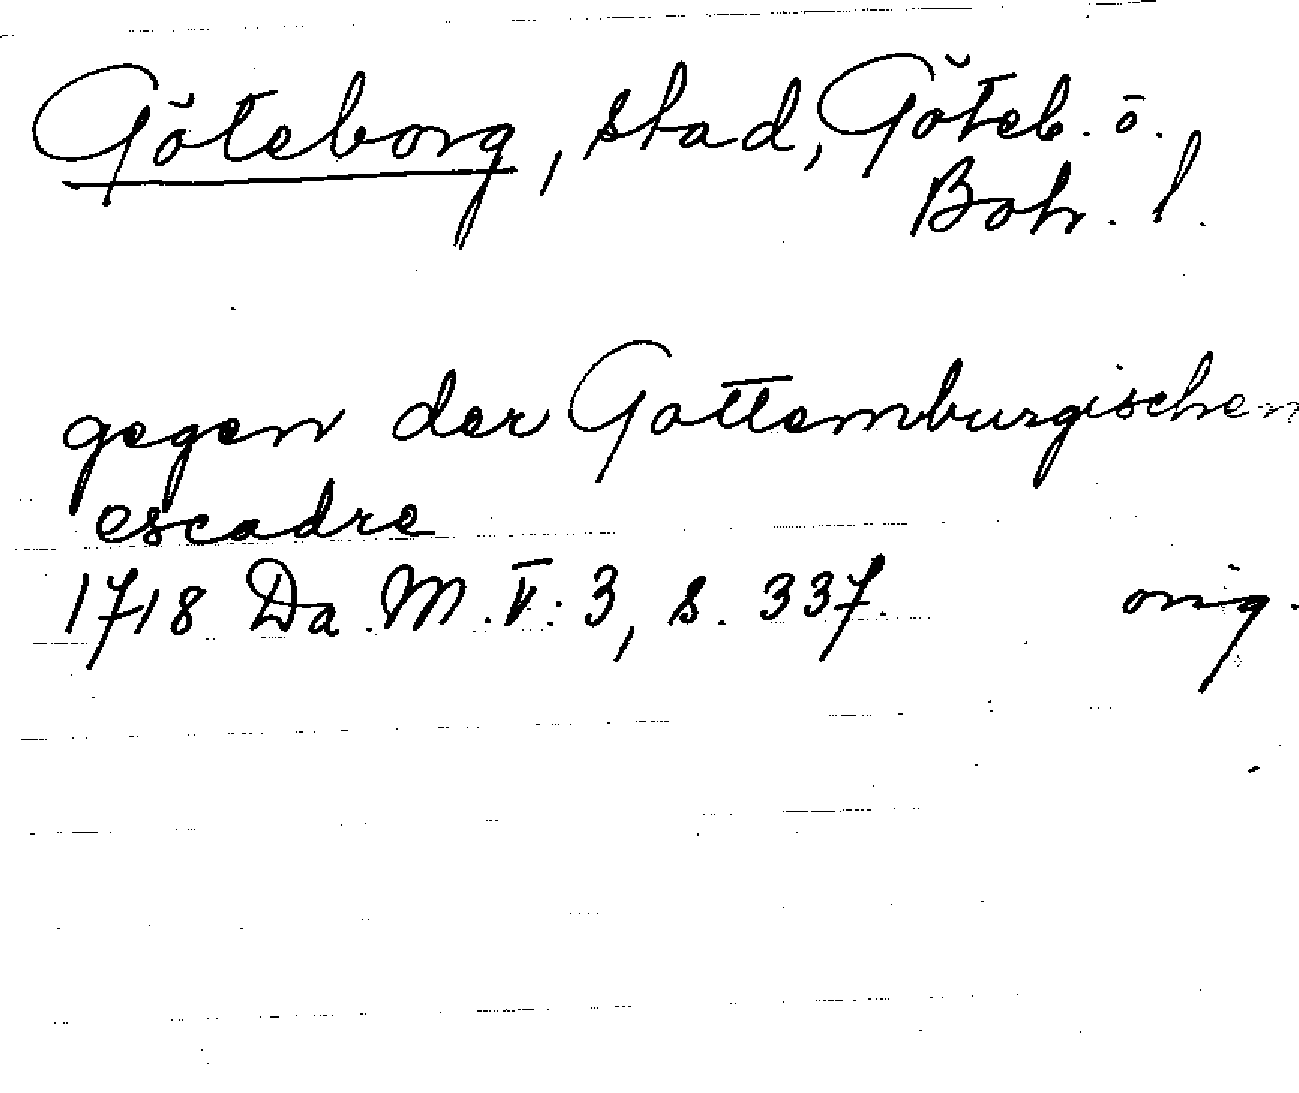 Göteborg, stad, Göteb. o.
Boh. l.
gegen der Gottemburgischen
escadre
1718 Da. M. V: 3, s. 337. orig.